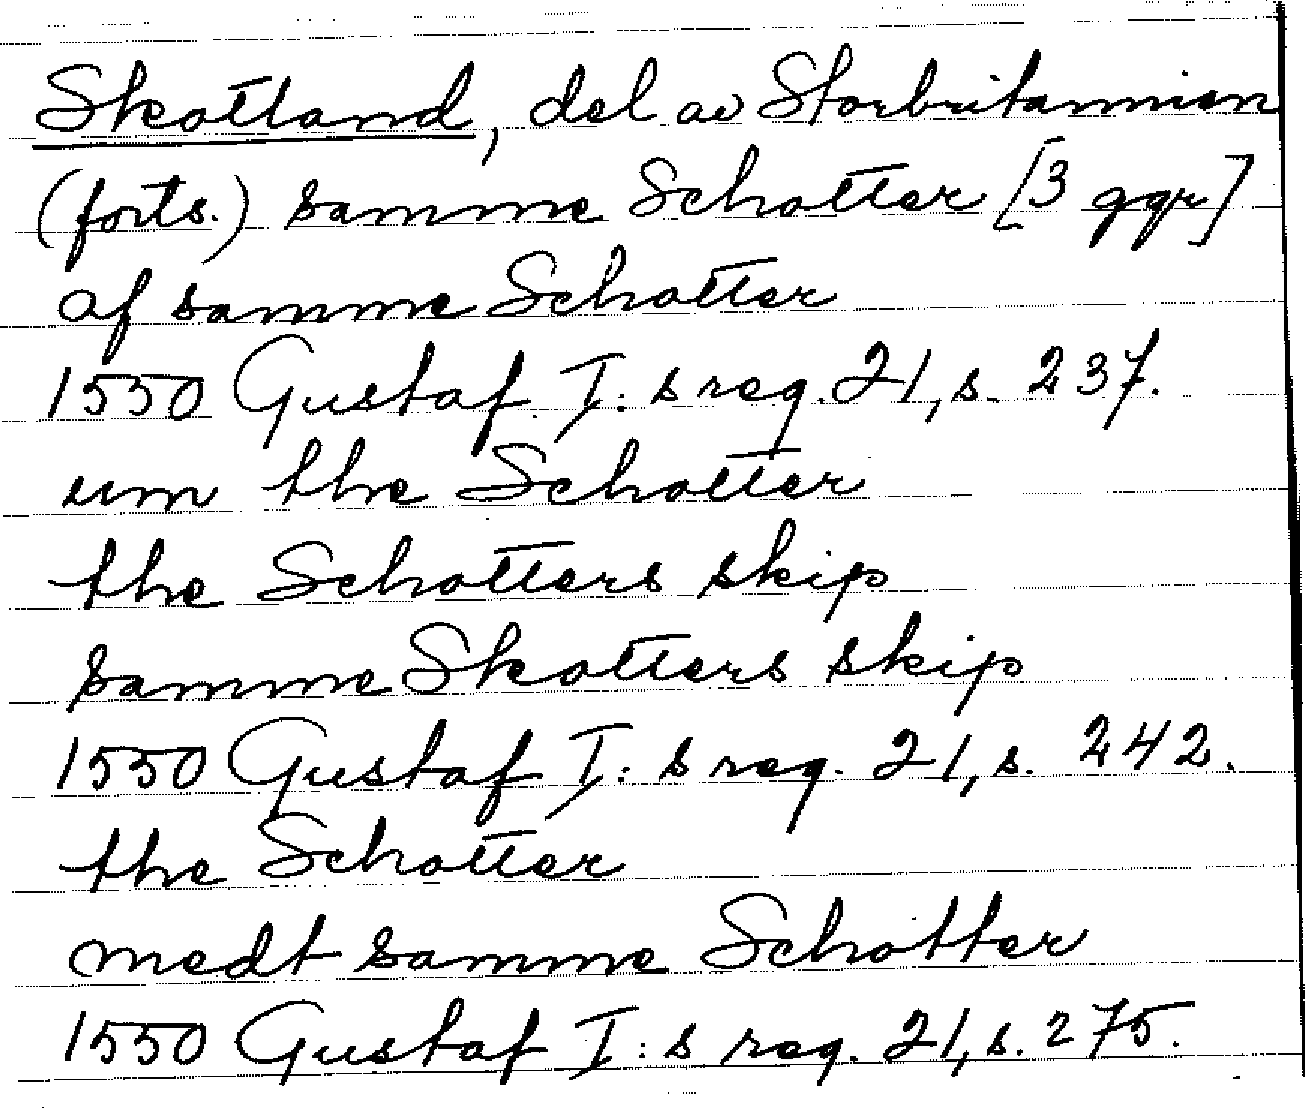 Skottland, del av Storbritannien
(forts.) samme Schotter [3 ggr]
af samme Schotter
1550 Gustaf I:s reg. 21, s. 237.
um the Schotter
the Schotters skip
samme Skotters skip
1550 Gustaf I:s reg. 21, s. 242.
the Schotter
medt samme Schotter
1550 Gustaf I:s reg. 21, s. 275.